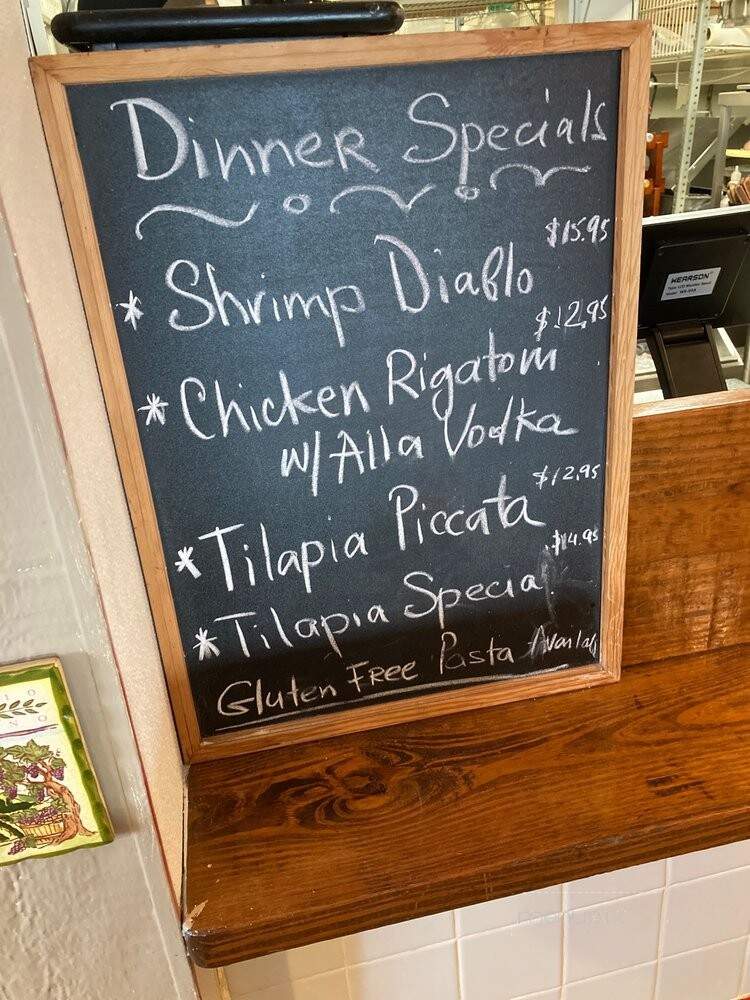 Dinner Specials
$15.95
* Shrimp Diablo
$12.95
* Chicken Rigatoni
w/Alla Vodka
$12.95
* Tilapia Piccata
$14.95
* Tilapia Special
Gluten Free Pasta Availab
WEARSON